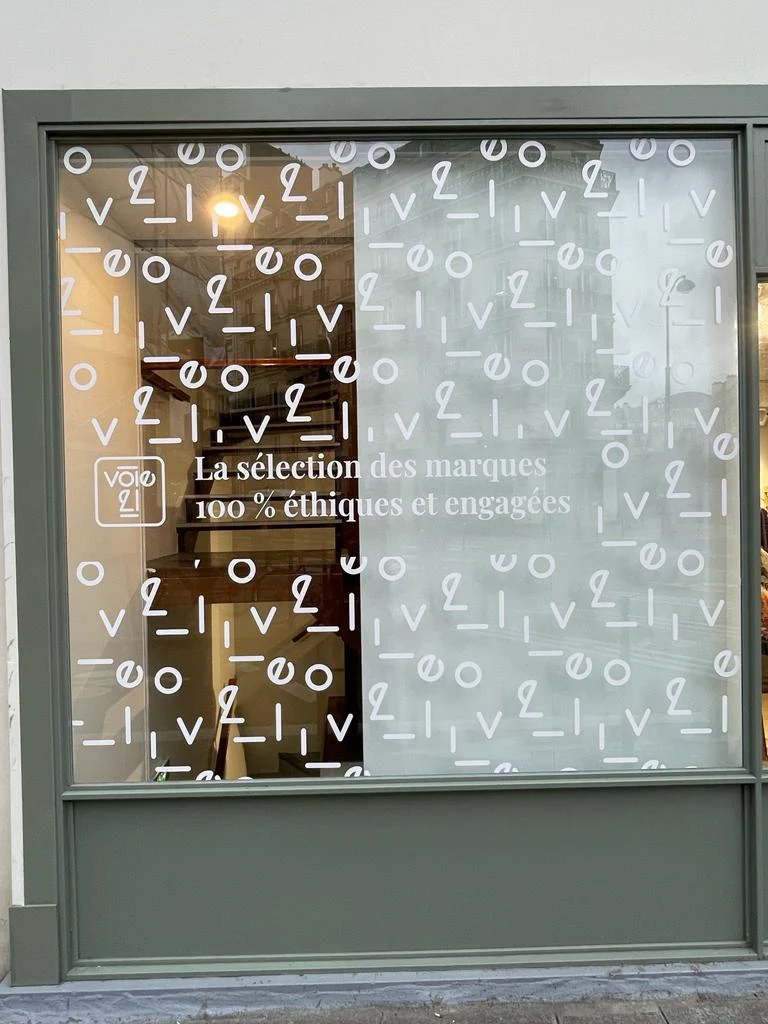 voie
21
La sélection des marques
100 % éthiques et engagées